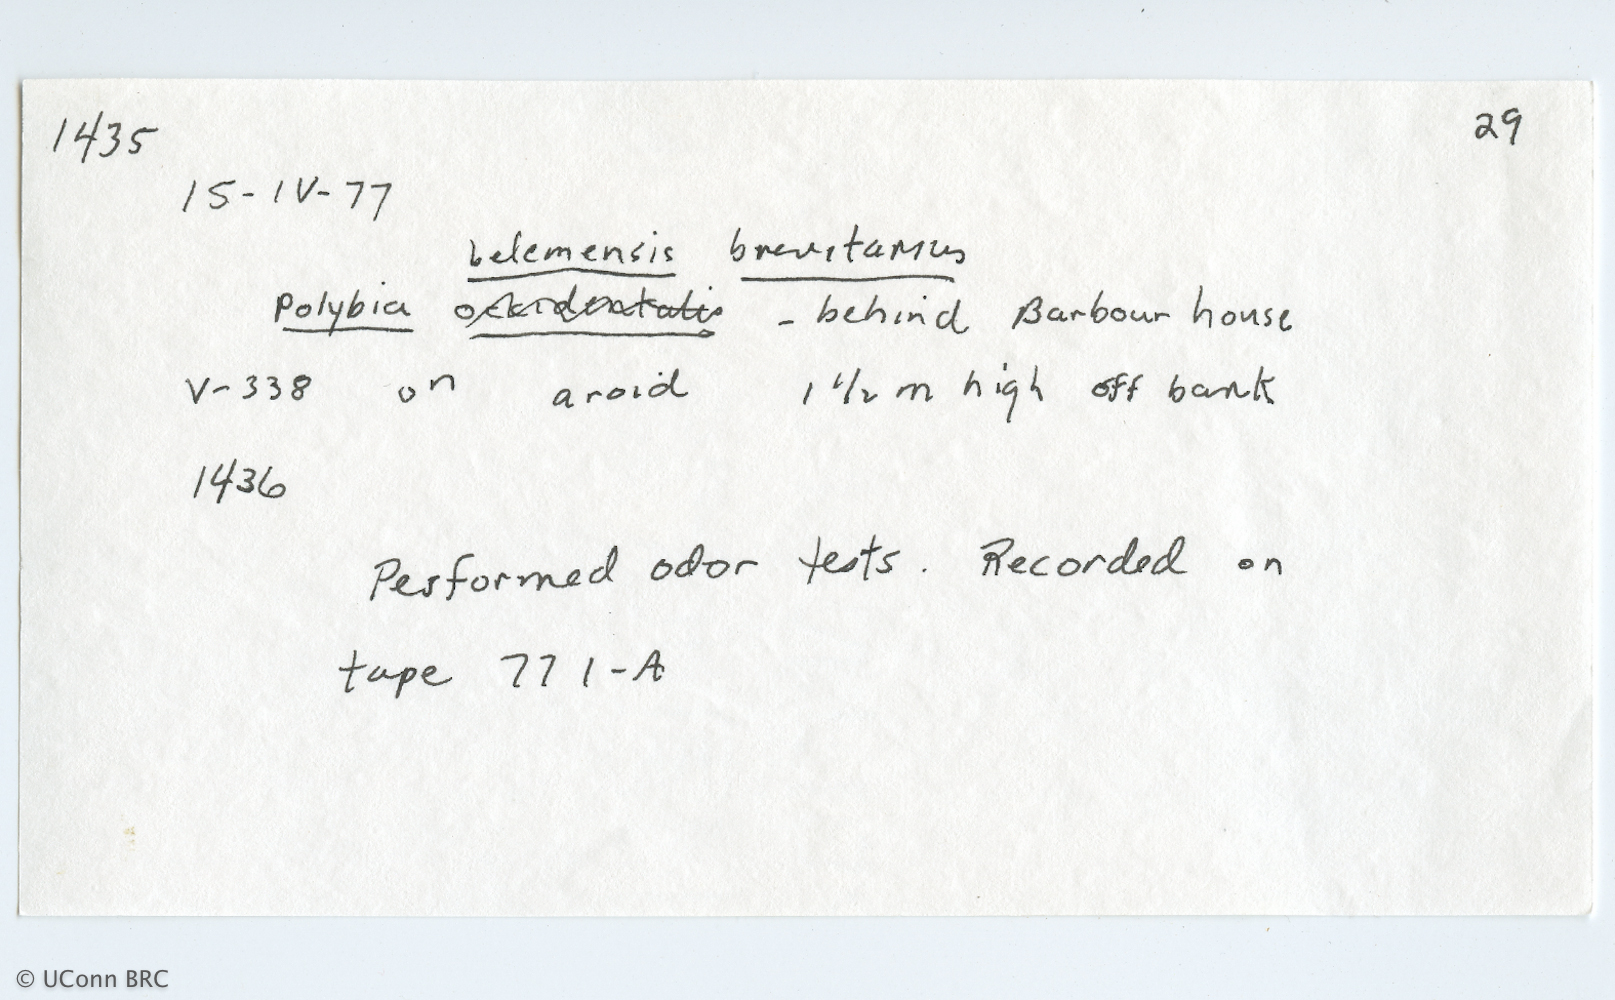 1435 29
15-IV-77
belemensis brevitarsus
Polybia occidentalis - behind Barbour house
V-338 on aroid 1 1/2 m high off bank
1436
Performed odor tests. Recorded on
tape 77 1-A
© UConn BRC